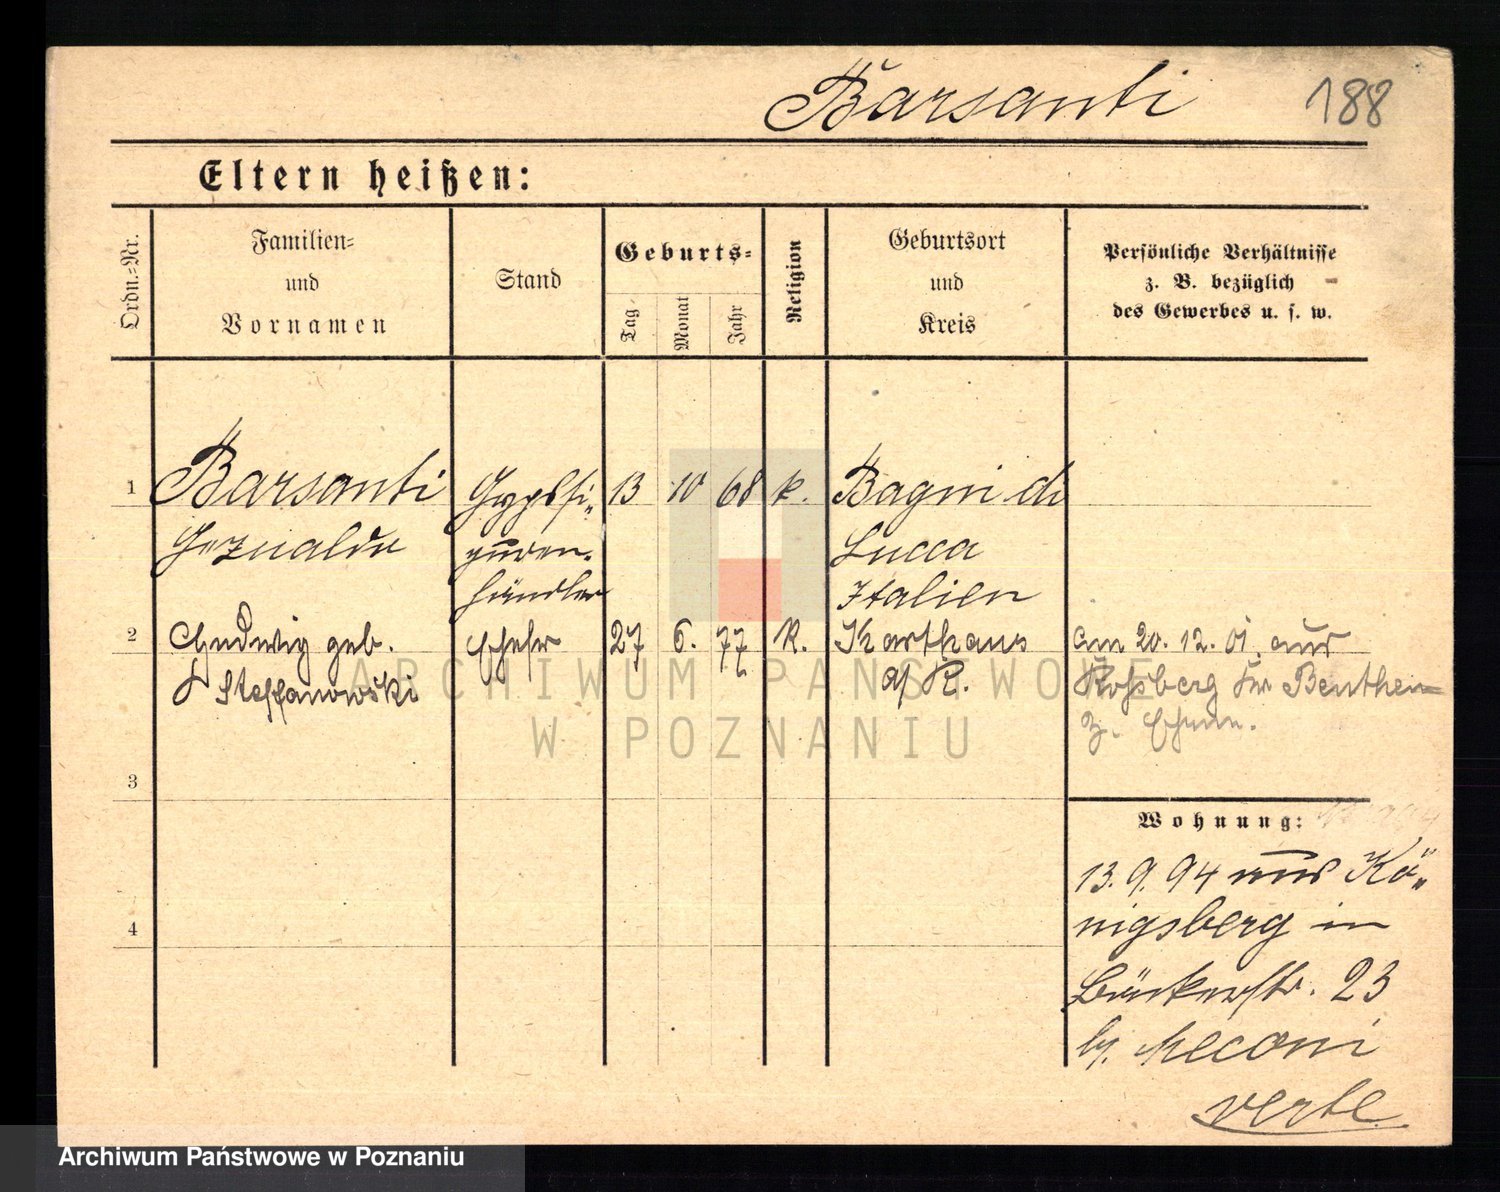 Barsanti 188
Eltern heißen:
Ordn.=Nr.
Familien=
und
Vornamen
Stand
Geburts=
Tag
Monat
Jahr
Religion
Geburtsort
und
Kreis
Persönliche Verhältnisse
z. B. bezüglich
des Gewerbes u. s. w.
1 Barsanti Gypsfi= 13 10 68 k. Bagni di
guren= Lucca
händler Italien
2 Hedwig geb. Ehefr 27 6. 77 K. Karthaus am 20. 12. 01. aus
Steffanowski Rossberg Beuthen
z. Ehem.
3
Wohnung:
13. 9. 94 aus Kö=
4 nigsberg in
Bäckerstr. 23
b. Meconi
verte
ARCHIWUM PAŃSTWOWE
W POZNANIU
Archiwum Państwowe w Poznaniu